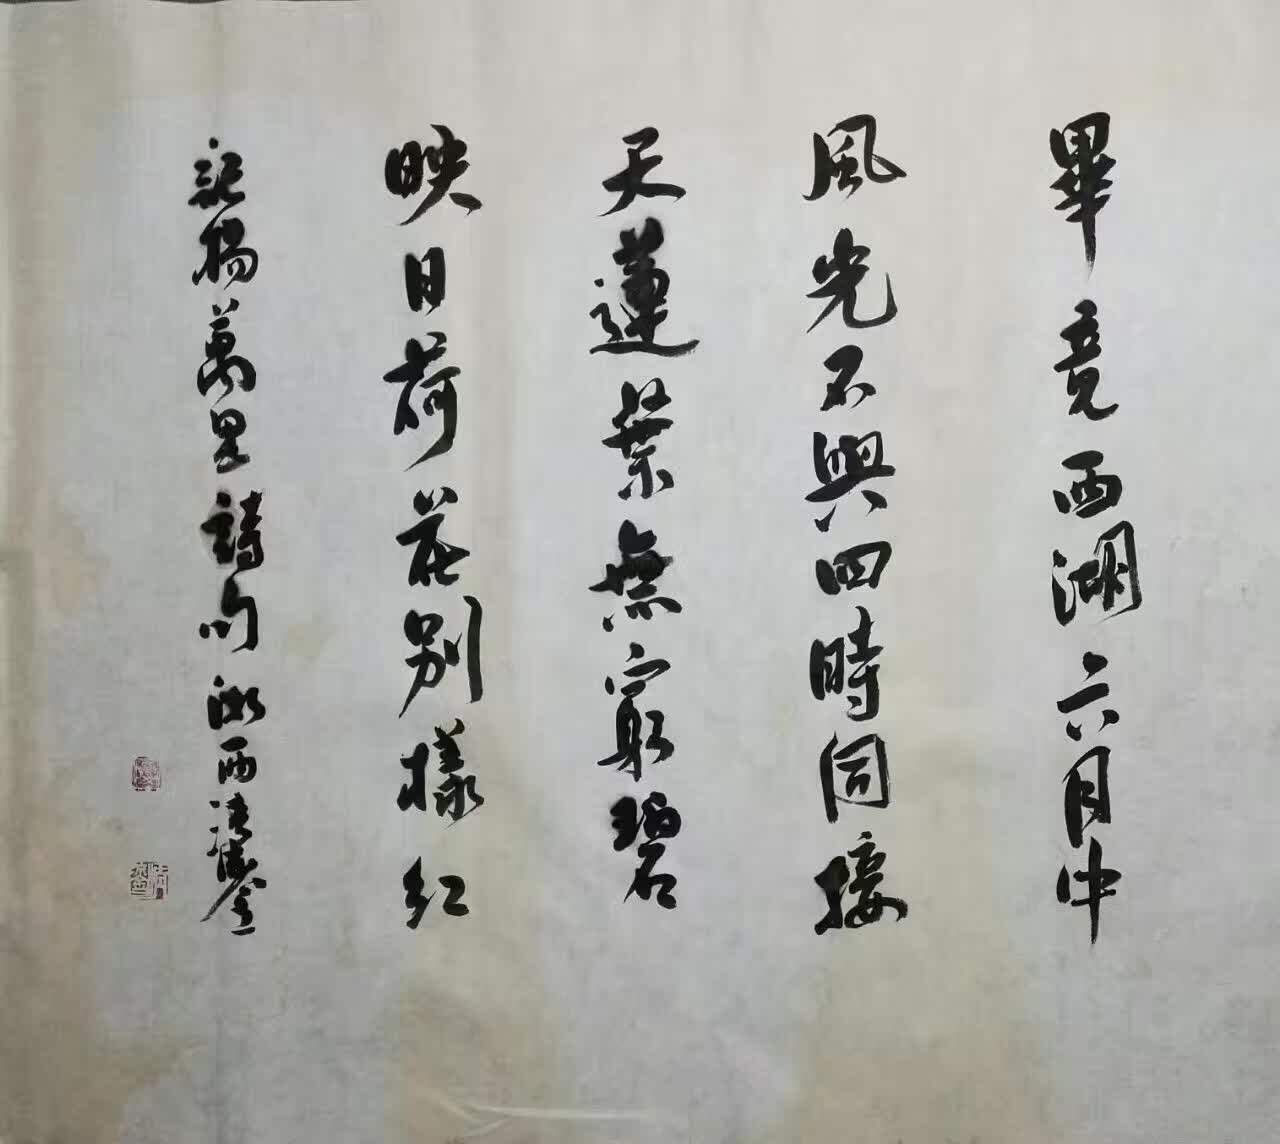 畢竟西湖六月中
風光不與四時同接
天蓮葉無窮碧
映日荷花別樣紅
記楊萬里詩句湘西